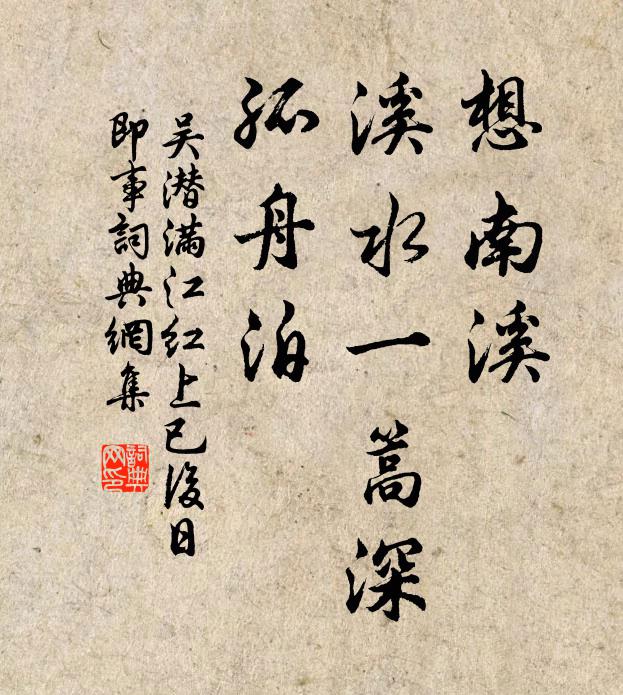 想南溪
溪水一蒿深
孤舟泊
吴潜满江红上巳後日
即事詞典網集
詞典
网印